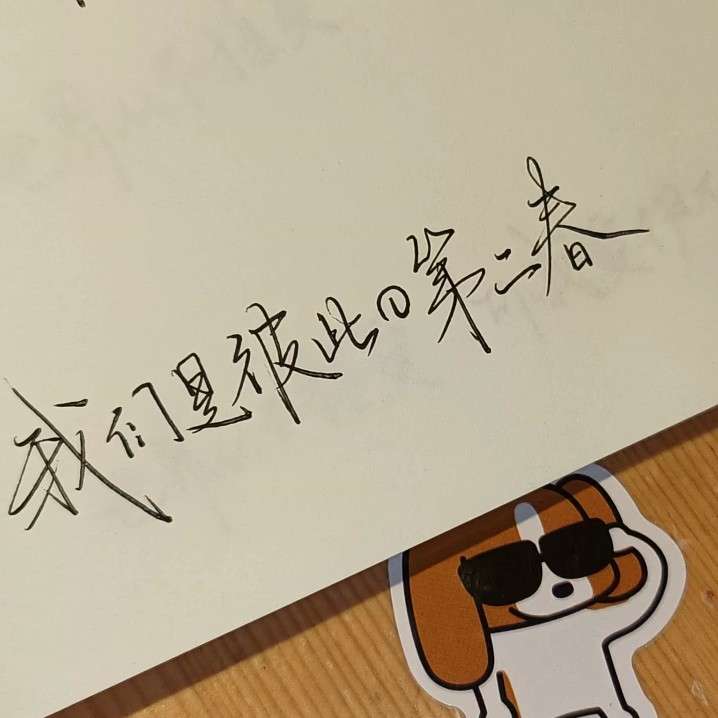 我们是彼此的第二春